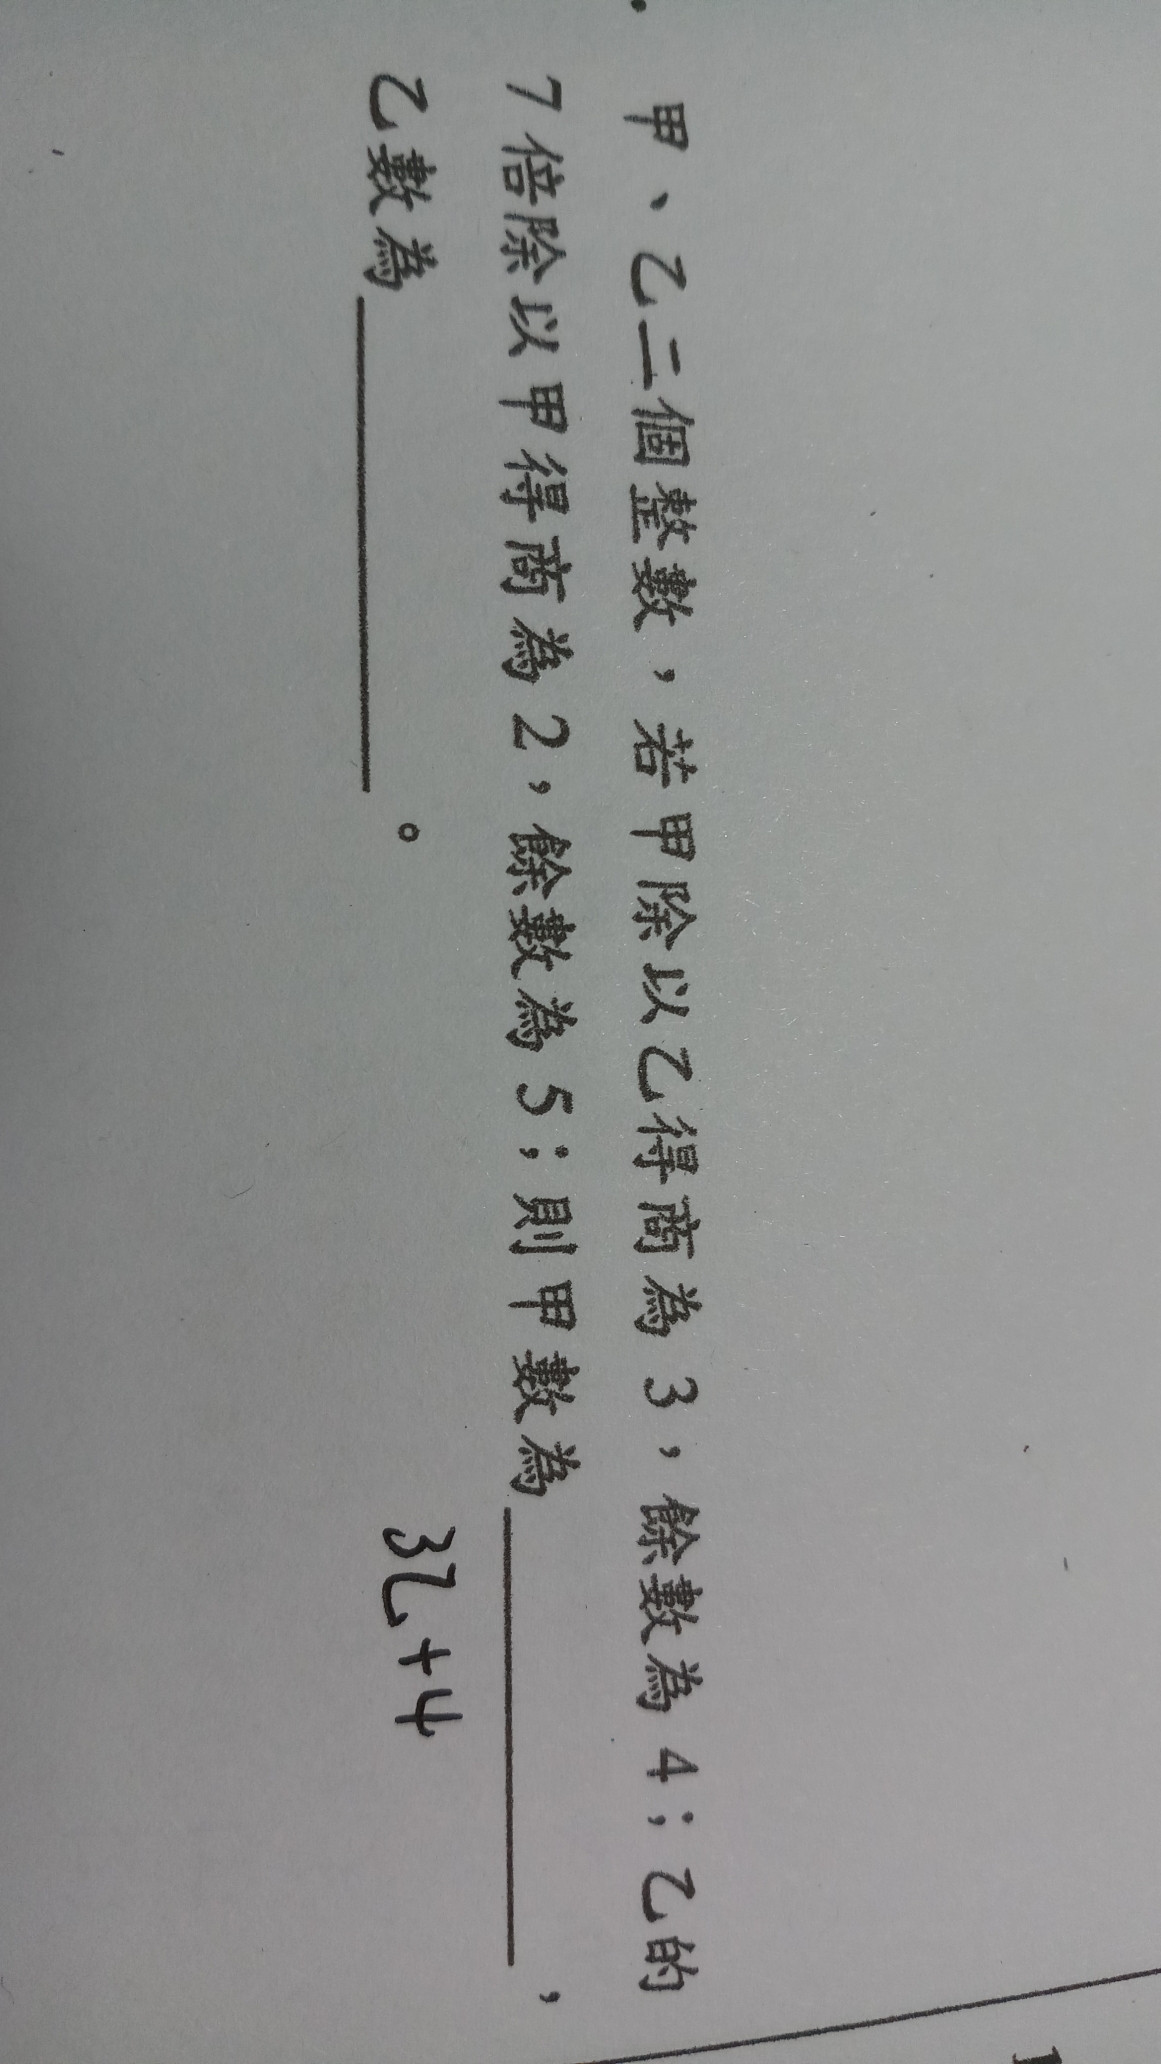 甲、乙二個整數，若甲除以乙得商為 3，餘數為 4；乙的
7 倍除以甲得商為 2，餘數為 5；則甲數為＿＿＿＿＿＿，
乙數為＿＿＿＿＿＿。
3乙+4